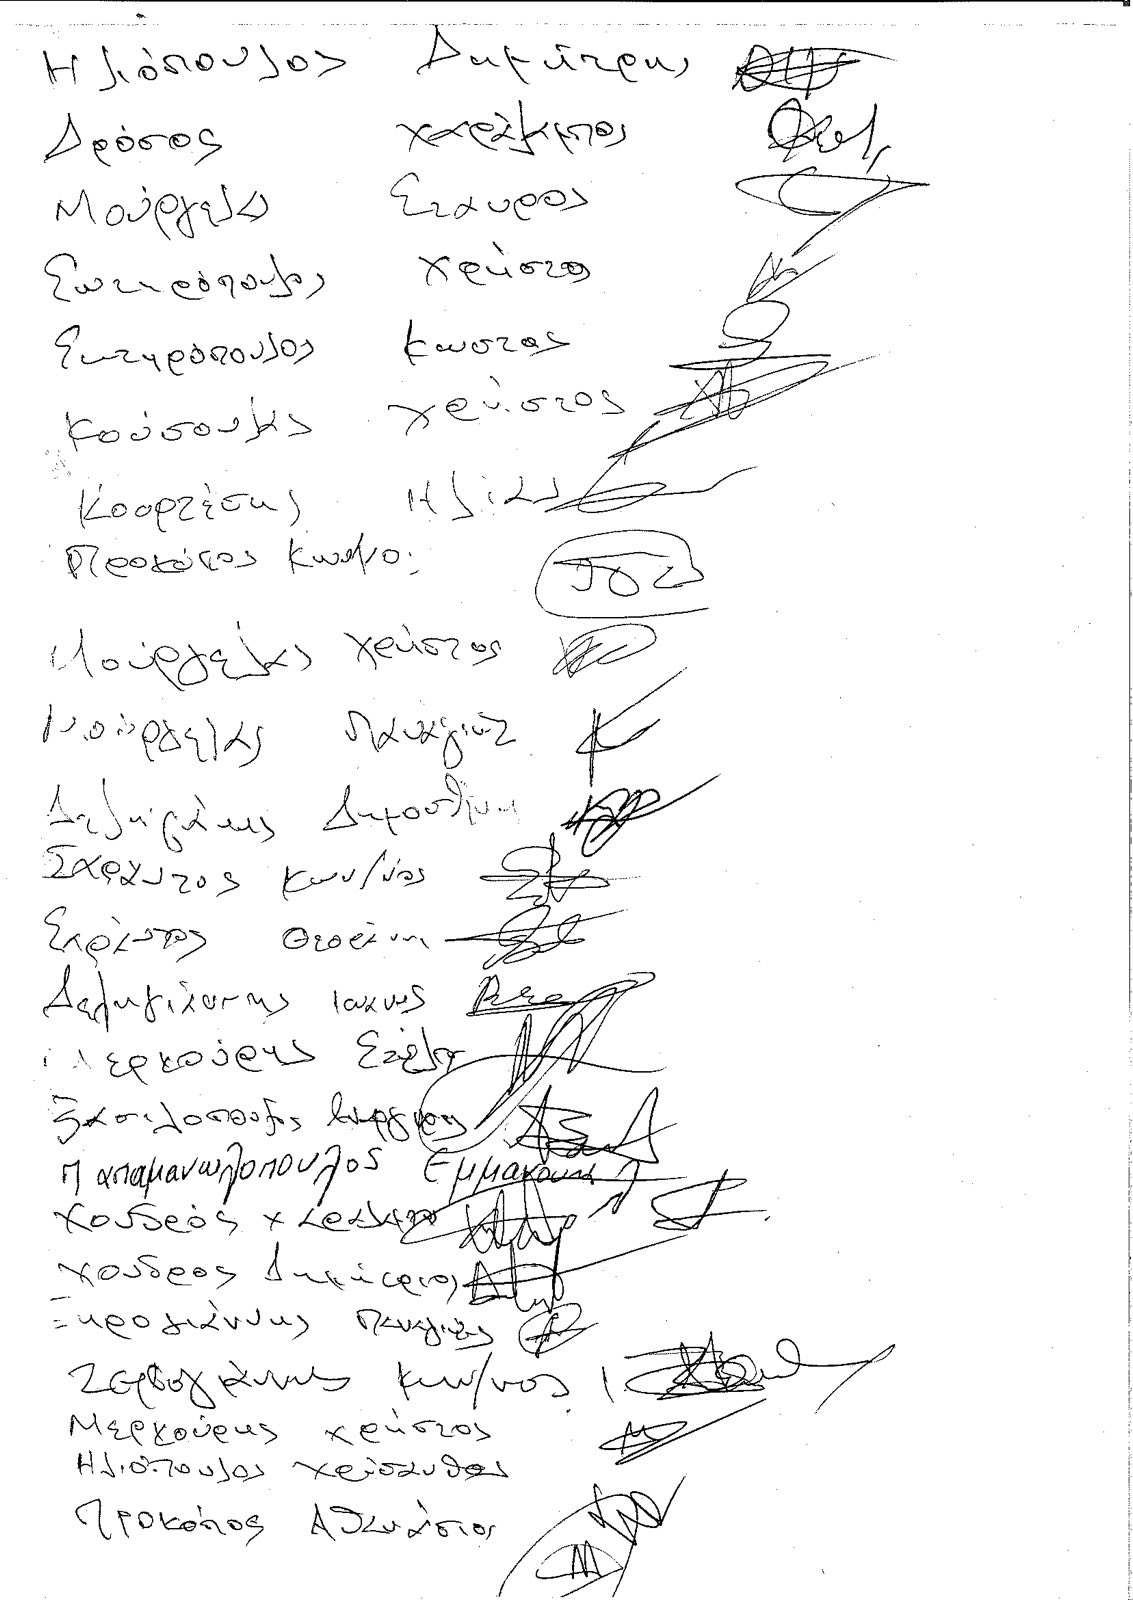 Ηλιόπουλος Δημήτρης
Δρόσος Χαράλαμπος
Μούργελας Σταύρος
Σωτηρόπουλος Χρήστος
Σωτηρόπουλος Κωστας
Κούσουλας Χρήστος
Κουρτέσης Ηλίας
Προκόπος
Μούργελας Χρήστος
Μούργελας Παναγιώτ
Δεληγιάννης Δημοσθένη
Σαράντος Κων/νος
Σαράντος
Δεληγιάννης Ιωάννης
Μερκούρης Στέλιο
Παπαμανωλόπουλος Εμμανουηλ
Χονδρός Χαράλαμπο
Χονδρος Δημήτριος
Ξηρογιάννης Παναγιώτης
Ζερβογιάννης Κων/νος
Μερκούρης Χρήστος
Ηλιόπουλος Χρύσανθος
Προκόπος Αθανάσιος